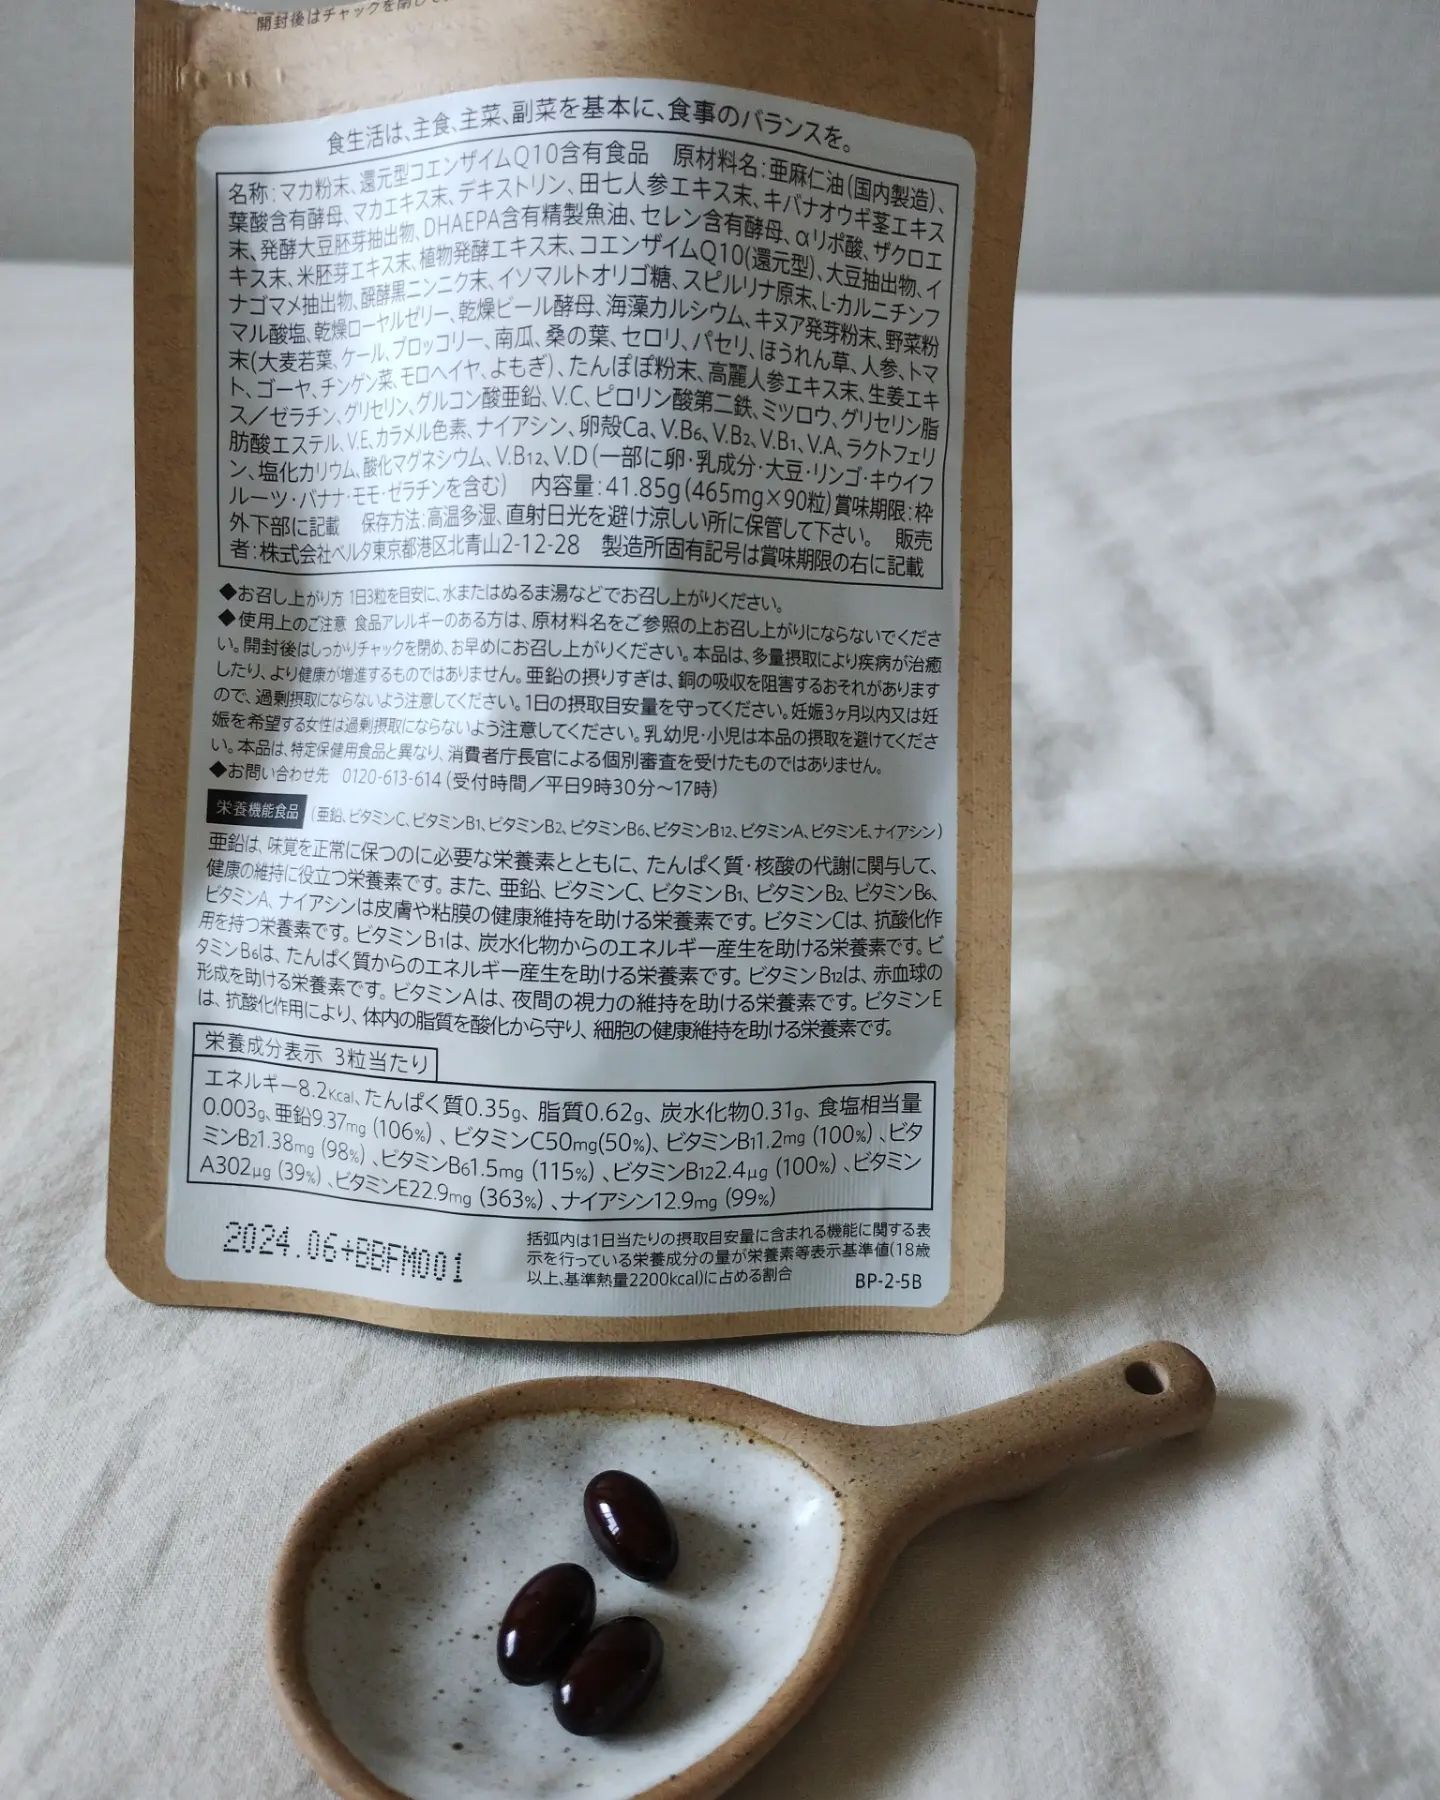 開封後はチャックを閉じて
食生活は、主食、主菜、副菜を基本に、食事のバランスを。
名称：マカ粉末、還元型コエンザイムQ10含有食品　原材料名：亜麻仁油（国内製造）、
葉酸含有酵母、マカエキス末、デキストリン、田七人参エキス末、キバナオウギ茎エキス
末、発酵大豆胚芽抽出物、DHAEPA含有精製魚油、セレン含有酵母、αリポ酸、ザクロエ
キス末、米胚芽エキス末、植物発酵エキス末、コエンザイムQ10(還元型)、大豆抽出物、イ
ナゴマメ抽出物、醗酵黒ニンニク末、イソマルトオリゴ糖、スピルリナ原末、L-カルニチンフ
マル酸塩、乾燥ローヤルゼリー、乾燥ビール酵母、海藻カルシウム、キヌア発芽粉末、野菜粉
末(大麦若葉、ケール、ブロッコリー、南瓜、桑の葉、セロリ、パセリ、ほうれん草、人参、トマ
ト、ゴーヤ、チンゲン菜、モロヘイヤ、よもぎ）、たんぽぽ粉末、高麗人参エキス末、生姜エキ
ス／ゼラチン、グリセリン、グルコン酸亜鉛、V.C、ピロリン酸第二鉄、ミツロウ、グリセリン脂
肪酸エステル、V.E、カラメル色素、ナイアシン、卵殻Ca、V.B6、V.B2、V.B1、V.A、ラクトフェリ
ン、塩化カリウム、酸化マグネシウム、V.B12、V.D（一部に卵・乳成分・大豆・リンゴ・キウイフ
ルーツ・バナナ・モモ・ゼラチンを含む）　内容量：41.85g(465mg×90粒)賞味期限：枠
外下部に記載　保存方法：高温多湿、直射日光を避け涼しい所に保管して下さい。　販売
者：株式会社ベルタ東京都港区北青山2-12-28　製造所固有記号は賞味期限の右に記載
◆お召し上がり方 1日3粒を目安に、水またはぬるま湯などでお召し上がりください。
◆使用上のご注意 食品アレルギーのある方は、原材料名をご参照の上お召し上がりにならないでくださ
い。開封後はしっかりチャックを閉め、お早めにお召し上がりください。本品は、多量摂取により疾病が治癒
したり、より健康が増進するものではありません。亜鉛の摂りすぎは、銅の吸収を阻害するおそれがあります
ので、過剰摂取にならないよう注意してください。1日の摂取目安量を守ってください。妊娠3ヶ月以内又は妊
娠を希望する女性は過剰摂取にならないよう注意してください。乳幼児・小児は本品の摂取を避けてくださ
い。本品は、特定保健用食品と異なり、消費者庁長官による個別審査を受けたものではありません。
◆お問い合わせ先　0120-613-614（受付時間／平日9時30分～17時）
栄養機能食品（亜鉛、ビタミンC、ビタミンB1、ビタミンB2、ビタミンB6、ビタミンB12、ビタミンA、ビタミンE、ナイアシン）
亜鉛は、味覚を正常に保つのに必要な栄養素とともに、たんぱく質・核酸の代謝に関与して、
健康の維持に役立つ栄養素です。また、亜鉛、ビタミンC、ビタミンB1、ビタミンB2、ビタミンB6、
ビタミンA、ナイアシンは皮膚や粘膜の健康維持を助ける栄養素です。ビタミンCは、抗酸化作
用を持つ栄養素です。ビタミンB1は、炭水化物からのエネルギー産生を助ける栄養素です。ビ
タミンB6は、たんぱく質からのエネルギー産生を助ける栄養素です。ビタミンB12は、赤血球の
形成を助ける栄養素です。ビタミンAは、夜間の視力の維持を助ける栄養素です。ビタミンE
は、抗酸化作用により、体内の脂質を酸化から守り、細胞の健康維持を助ける栄養素です。
栄養成分表示 3粒当たり
エネルギー8.2Kcal、たんぱく質0.35g、脂質0.62g、炭水化物0.31g、食塩相当量
0.003g、亜鉛9.37mg（106%）、ビタミンC50mg(50%)、ビタミンB11.2mg（100%）、ビタ
ミンB21.38mg（98%）、ビタミンB61.5mg（115%）、ビタミンB122.4μg（100%）、ビタミン
A302μg（39%）、ビタミンE22.9mg（363%）、ナイアシン12.9mg（99%）
2024.06+BBFM001
括弧内は1日当たりの摂取目安量に含まれる機能に関する表
示を行っている栄養成分の量が栄養素等表示基準値(18歳
以上、基準熱量2200kcal)に占める割合
BP-2-5B